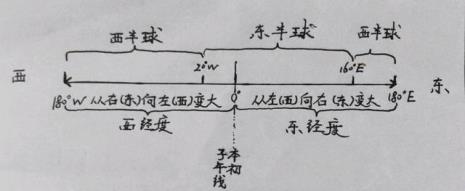 西半球 东半球 西半球
20°W 160°E
西 东
180°W 从右(东)向左(西)变大 0° 从左(西)向右(东)变大 180°E
西经度 东经度
本初
子午线